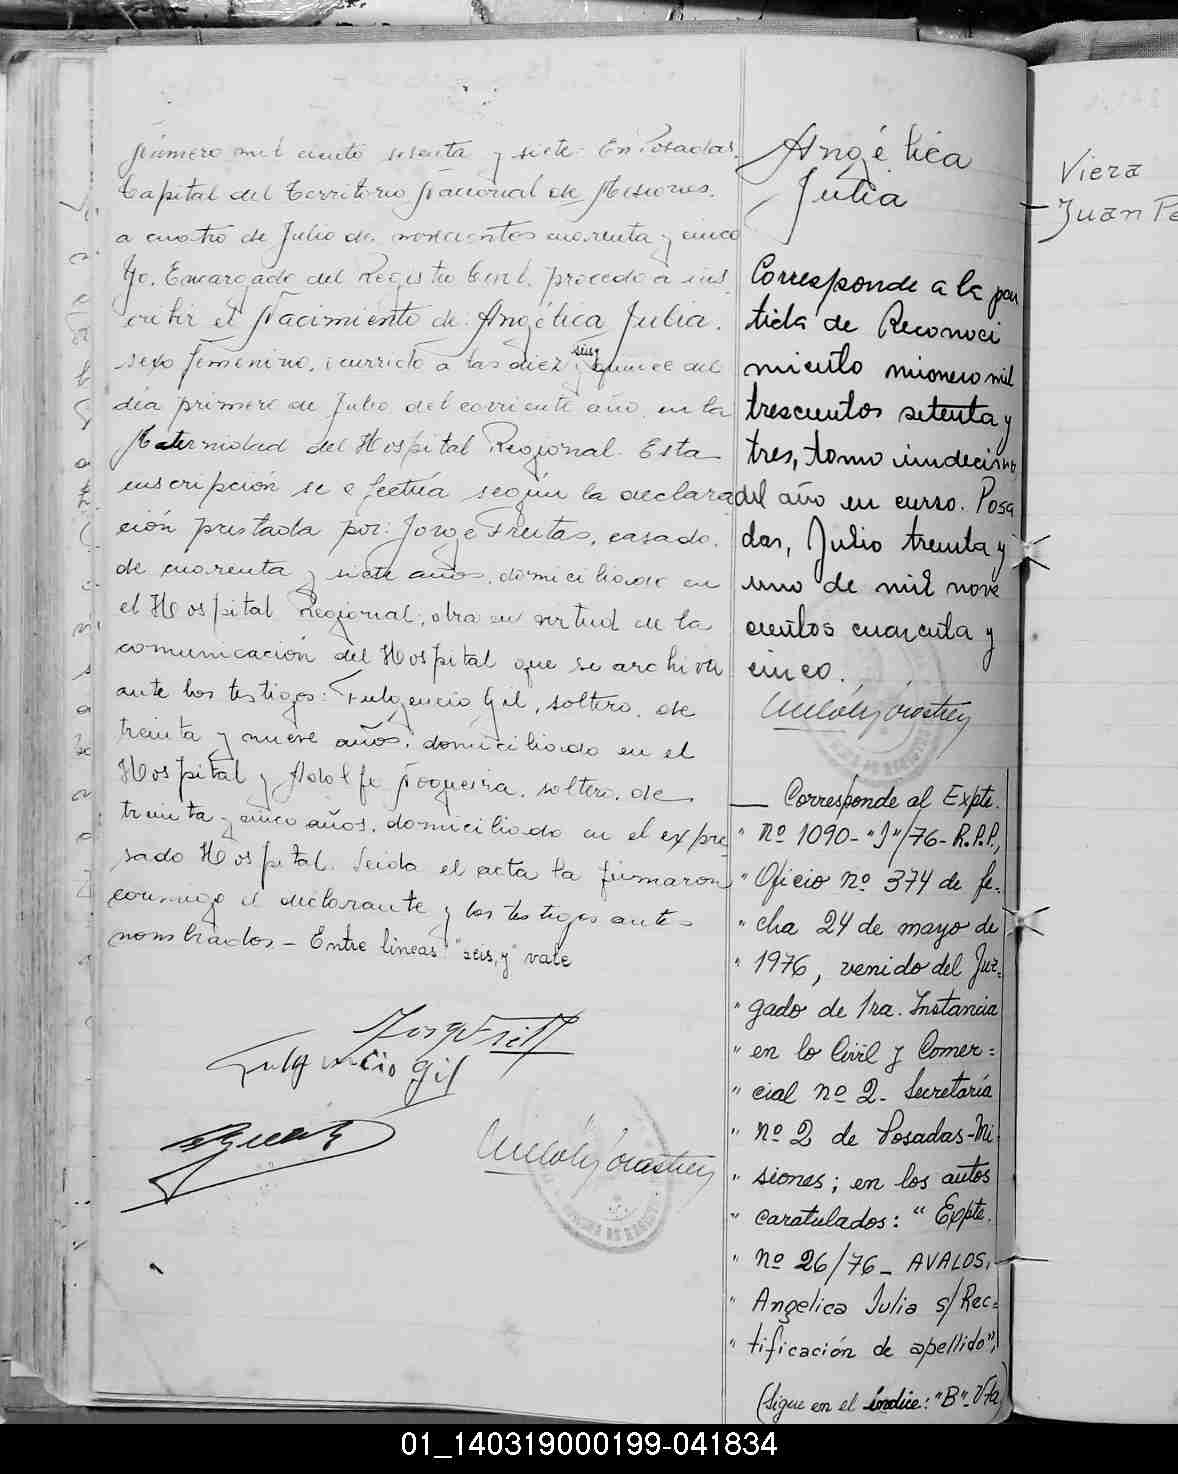 Número mil ciento sesenta y siete. En Posadas.
Capital del Territorio Nacional de Misiones.
a cuatro de Julio de novecientos cuarenta y cinco
Yo. Encargado del Registro Civil. procedo a ins
cribir el Nacimiento de: Angélica Julia.
sexo femenino, ocurrido a las diez y quince del
seis y
día primero de Julio del corriente año. en la
Maternidad del Hospital Regional. Esta
inscripción se efectúa según la declara
ción prestada por: Jorge Freitas, casado.
de cuarenta y siete años, domiciliado en
el Hospital Regional, obra en virtud de la
comunicación del Hospital que se archiva
ante los testigos: Fulgencio Gil, soltero, de
treinta y nueve años, domiciliado en el
Hospital y Adolfo Nogueira, soltero, de
treinta y cinco años, domiciliado en el expre
sado Hospital. Leida el acta la firmaron
conmigo el declarante y los testigos ante-
nombrados - Entre lineas: "seis, y" vale
Fulgencio Gil
Angélica
Julia
Corresponde a la par
tida de Reconoci
miento número mil
trescientos setenta y
tres, tomo undécimo
del año en curso. Posa
das, Julio treinta y
uno de mil nove
cientos cuarenta y
cinco.
Corresponde al Expte.
" Nº 1090-"J"/76-R.P.P.,
" Oficio Nº 374 de fe-
" cha 24 de mayo de
" 1976, venido del Juz=
" gado de 1ra. Instancia
" en lo Civil y Comer=
" cial Nº 2- Secretaría
" Nº 2 de Posadas-Mi
" siones; en los autos
" caratulados: "Expte.
" Nº 26/76- AVALOS,
" Angelica Julia s/Rec=
" tificación de apellido",
(Sigue en el índice: "B"-Vta)
Viera
Juan Pe
01_140319000199-041834